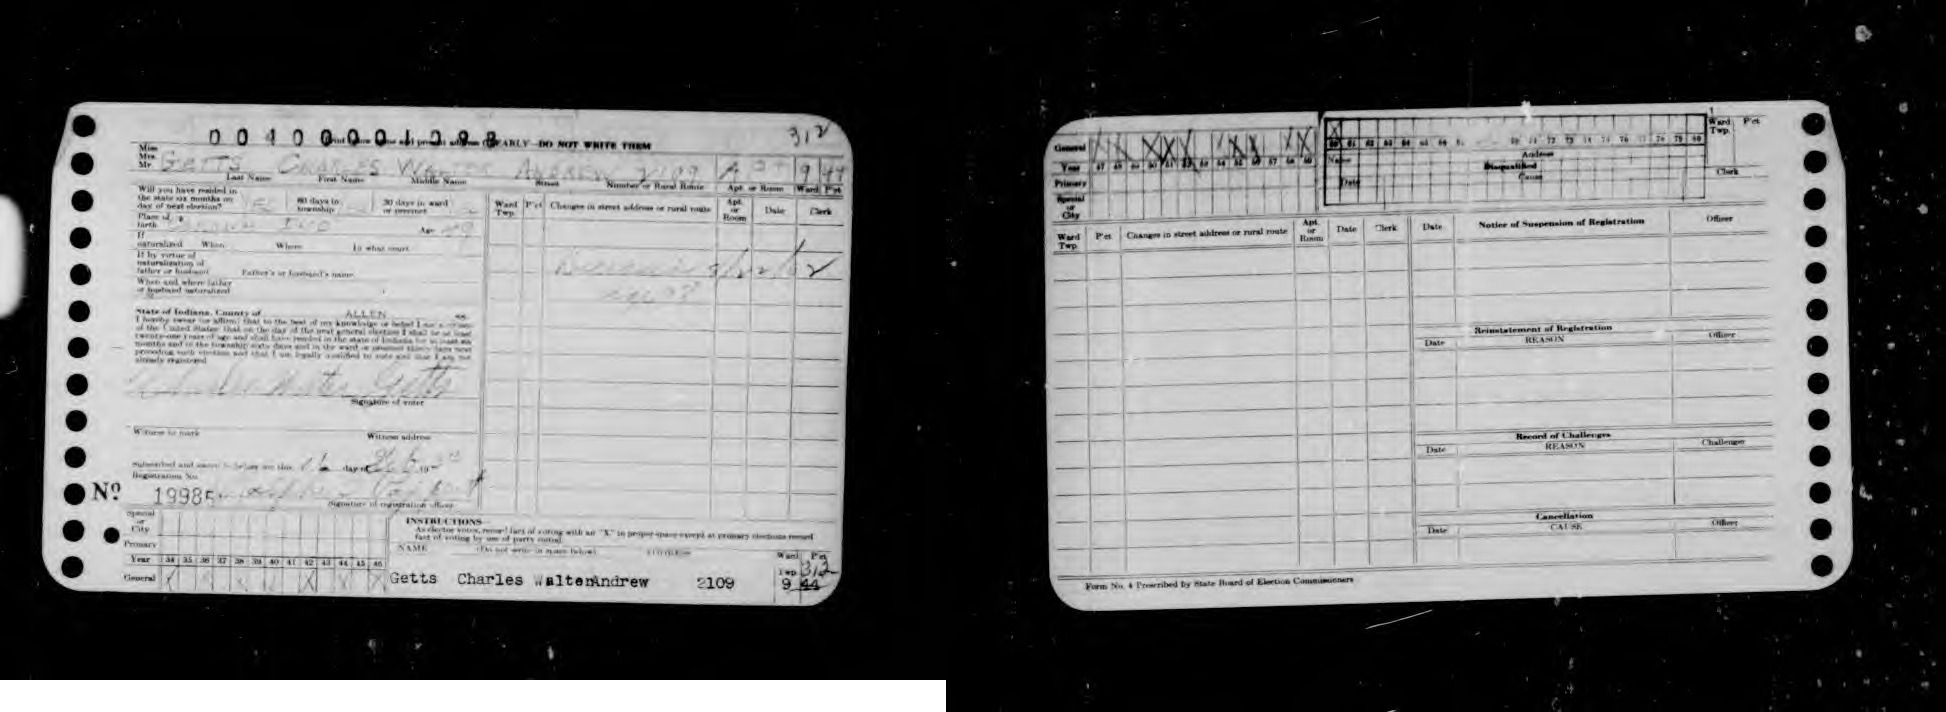 312
00400001098
CLEARLY—DO NOT WRITE THEM
Miss
Mrs.
Mr.
GETTS CHARLES WALTER ANDREW 2109 9 44
Last Name First Name Middle Name Street Number or Rural Route Apt. or Room Ward P'ct
Will you have resided in
the state six months on
day of next election?
60 days in
township
30 days in ward
or precinct
Place of
birth
Age
If
naturalized When Where In what court
If by virtue of
naturalization of
father or husband Father's or husband's name
When and where father
or husband naturalized
State of Indiana, County of ALLEN ss
I hereby swear (or affirm) that to the best of my knowledge or belief I am a citizen
of the United States; that on the day of the next general election I shall be at least
twenty-one years of age and shall have resided in the state of Indiana for at least six
months and in the township sixty days and in the ward or precinct thirty days next
preceding such election and that I am legally qualified to vote and that I am not
already registered
Charles Walter Getts
Signature of voter
Witness to mark Witness address
Subscribed and sworn to before me this 16 day of Feb 19
Registration No.
Nº 19985
Signature of registration officer
Ward
Twp. P'ct Changes in street address or rural route Apt.
or
Room Date Clerk
Special
or
City
Primary
Year 34 35 36 37 38 39 40 41 42 43 44 45 46
General
INSTRUCTIONS—
As elector votes, record fact of voting with an "X" in proper space except at primary elections record
fact of voting by use of party initial.
NAME (Do not write in space below) ADDRESS
Ward
Twp. P'ct
312
Getts Charles Walter Andrew 2109 9 44
General
Year 47 48 49 50 51 52 53 54 55 56 57 58 59
Primary
Special
or
City
60 61 62 63 64 65 66 70 71 72 73 74 75 76 77 78 79 80
Name Address
Disqualified
Date Cause
Ward
Twp. P'ct
Clerk
Ward
Twp. P'ct Changes in street address or rural route Apt.
or
Room Date Clerk
Date Notice of Suspension of Registration Officer
Reinstatement of Registration
Date REASON Officer
Record of Challenges
Date REASON Challenger
Cancellation
Date CAUSE Officer
Form No. 4 Prescribed by State Board of Election Commissioners